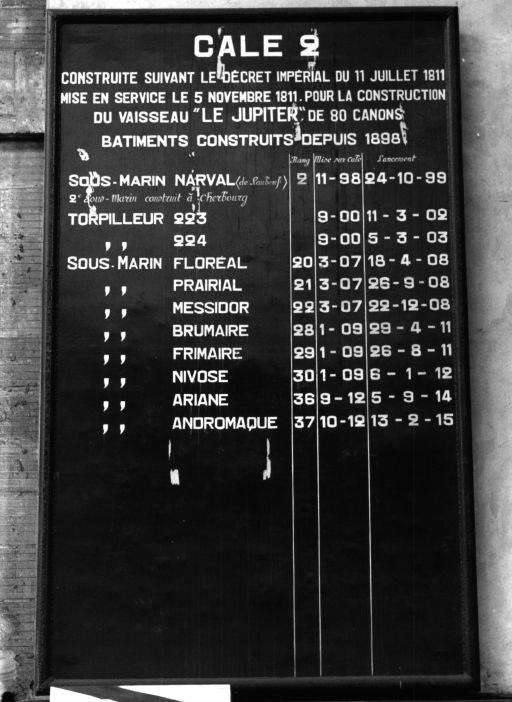 CALE 2
CONSTRUITE SUIVANT LE DÉCRET IMPÉRIAL DU 11 JUILLET 1811
MISE EN SERVICE LE 5 NOVEMBRE 1811. POUR LA CONSTRUCTION
DU VAISSEAU "LE JUPITER". DE 80 CANONS
BATIMENTS CONSTRUITS DEPUIS 1898
Rang Mise sur cale Lancement
SOUS-MARIN NARVAL (de Laubeuf) 2 11-98 24-10-99
2e Sous-Marin construit à Cherbourg
TORPILLEUR 223 9-00 11-3-02
,, 224 9-00 5-3-03
SOUS-MARIN FLORÉAL 20 3-07 18-4-08
,, PRAIRIAL 21 3-07 26-9-08
,, MESSIDOR 22 3-07 22-12-08
,, BRUMAIRE 28 1-09 29-4-11
,, FRIMAIRE 29 1-09 26-8-11
,, NIVOSE 30 1-09 6-1-12
,, ARIANE 36 9-12 5-9-14
,, ANDROMAQUE 37 10-12 13-2-15